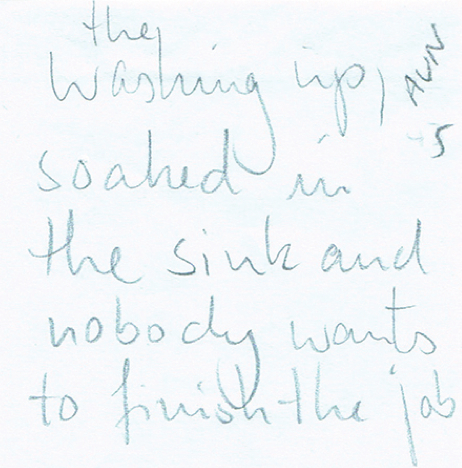 the
washing up,
soaked in
the sink and
nobody wants
to finish the job
AUN
45